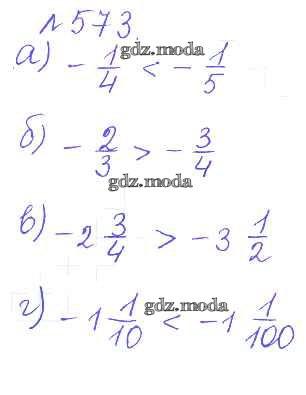 № 573.
а) - 1/4 < - 1/5
gdz.moda
б) - 2/3 > - 3/4
gdz.moda
в) - 2 3/4 > - 3 1/2
г) - 1 1/10 < - 1 1/100
gdz.moda